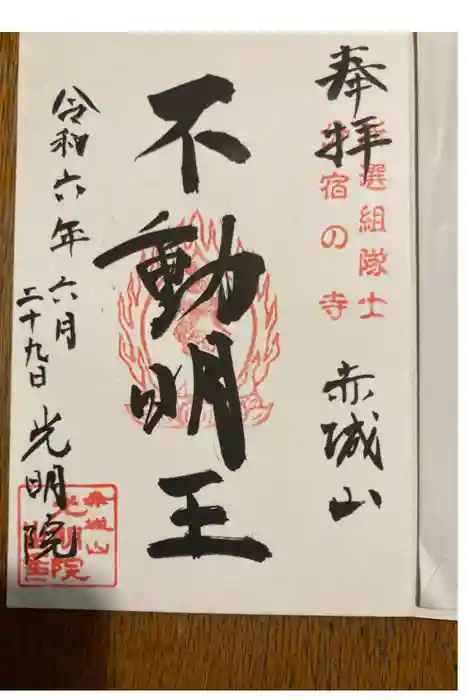 奉拝
選組隊士
宿の寺
赤城山
不動明王
令和六年六月
二十九日
光明院
赤城山